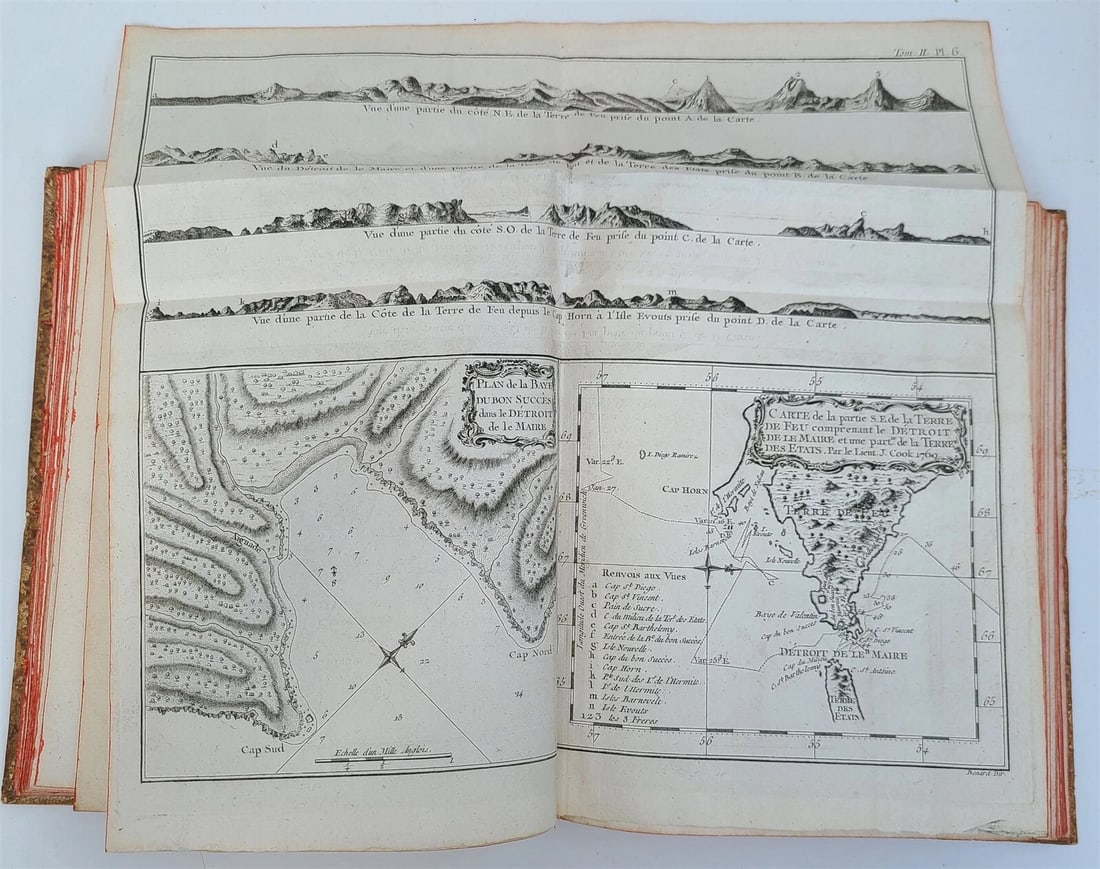 Tom. II. Pl. 6.
Vue d'une partie du côté N.E. de la Terre de Feu prise du point A. de la Carte.
Vue du Détroit de le Maire et d'une partie de la Terre de Feu et de la Terre des Etats prise du point B. de la Carte
Vue d'une partie du côté S.O. de la Terre de Feu prise du point C. de la Carte.
Vue d'une partie de la Côte de la Terre de Feu depuis le Cap Horn à l'Isle Evouts prise du point D. de la Carte.
PLAN de la BAYE
DU BON SUCCÈS
dans le DÉTROIT
de le MAIRE
Aiguade
Cap Nord
Cap Sud
Echelle d'un Mille Anglois.
CARTE de la partie S.E. de la TERRE
DE FEU comprenant le DÉTROIT
DE LE MAIRE et une partie de la TERRE
DES ETATS. Par le Lieut. J. Cook 1769
57 56 55 54
I. Diego Ramires
Var. 22d E.
Jan. 27
CAP HORN
I. l'Hermite
Isles Barnevelt
I. Evouts
Isle Nouvelle
TERRE DE FEU
Baye de Valentin
Cap du bon Succès
C. St. Vincent
St. Diego
DÉTROIT DE LE MAIRE
Cap du Milieu
C. St. Barthelemy
C. St. Antoine
TERRE
DES
ETATS
Longitude Ouest du Méridien de Greenwich
69
68
67
66
65
Renvois aux Vues
a Cap St. Diego.
b Cap St. Vincent.
c Pain de Sucre.
d C. du Milieu de la Ter. des Etats
e Cap St. Barthelemy.
f Entrée de la B. du bon Succès
g Isle Nouvelle.
h Cap du bon Succès.
i Cap Horn.
k Pte. Sud des I. de l'Hermite.
l I. de l'Hermite.
m Isles Barnevelt.
n Isle Evouts
1 2 3 les 3 Freres
57 56 55 54
Benard Dir.